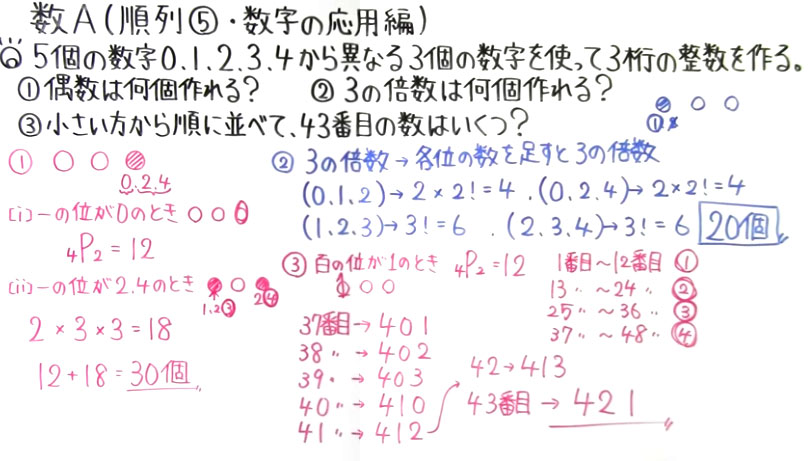 数A(順列⑤・数字の応用編)
◎ 5個の数字0.1.2.3.4から異なる3個の数字を使って3桁の整数を作る。
①偶数は何個作れる? ②3の倍数は何個作れる?
③小さい方から順に並べて、43番目の数はいくつ?
① ○ ○ ○
0.2.4
(i)一の位が0のとき ○ ○ 0
₄P₂ = 12
(ii)一の位が2.4のとき ● ○ ●
1.2③ 2④
2 × 3 × 3 = 18
12 + 18 = 30個
● ○ ○
② 3の倍数→各位の数を足すと3の倍数
(0.1.2)→ 2 × 2! = 4 . (0.2.4)→ 2×2! = 4
(1.2.3)→ 3! = 6 . (2.3.4)→ 3! = 6 20個
③ 百の位が1のとき ₄P₂ = 12
1 ○ ○
1番目〜12番目 ①
13 〃 〜 24 〃 ②
25 〃 〜 36 〃 ③
37 〃 〜 48 〃 ④
37番目→ 401
38 〃 → 402
39 〃 → 403
40 〃 → 410
41 〃 → 412
42 → 413
43番目 → 421